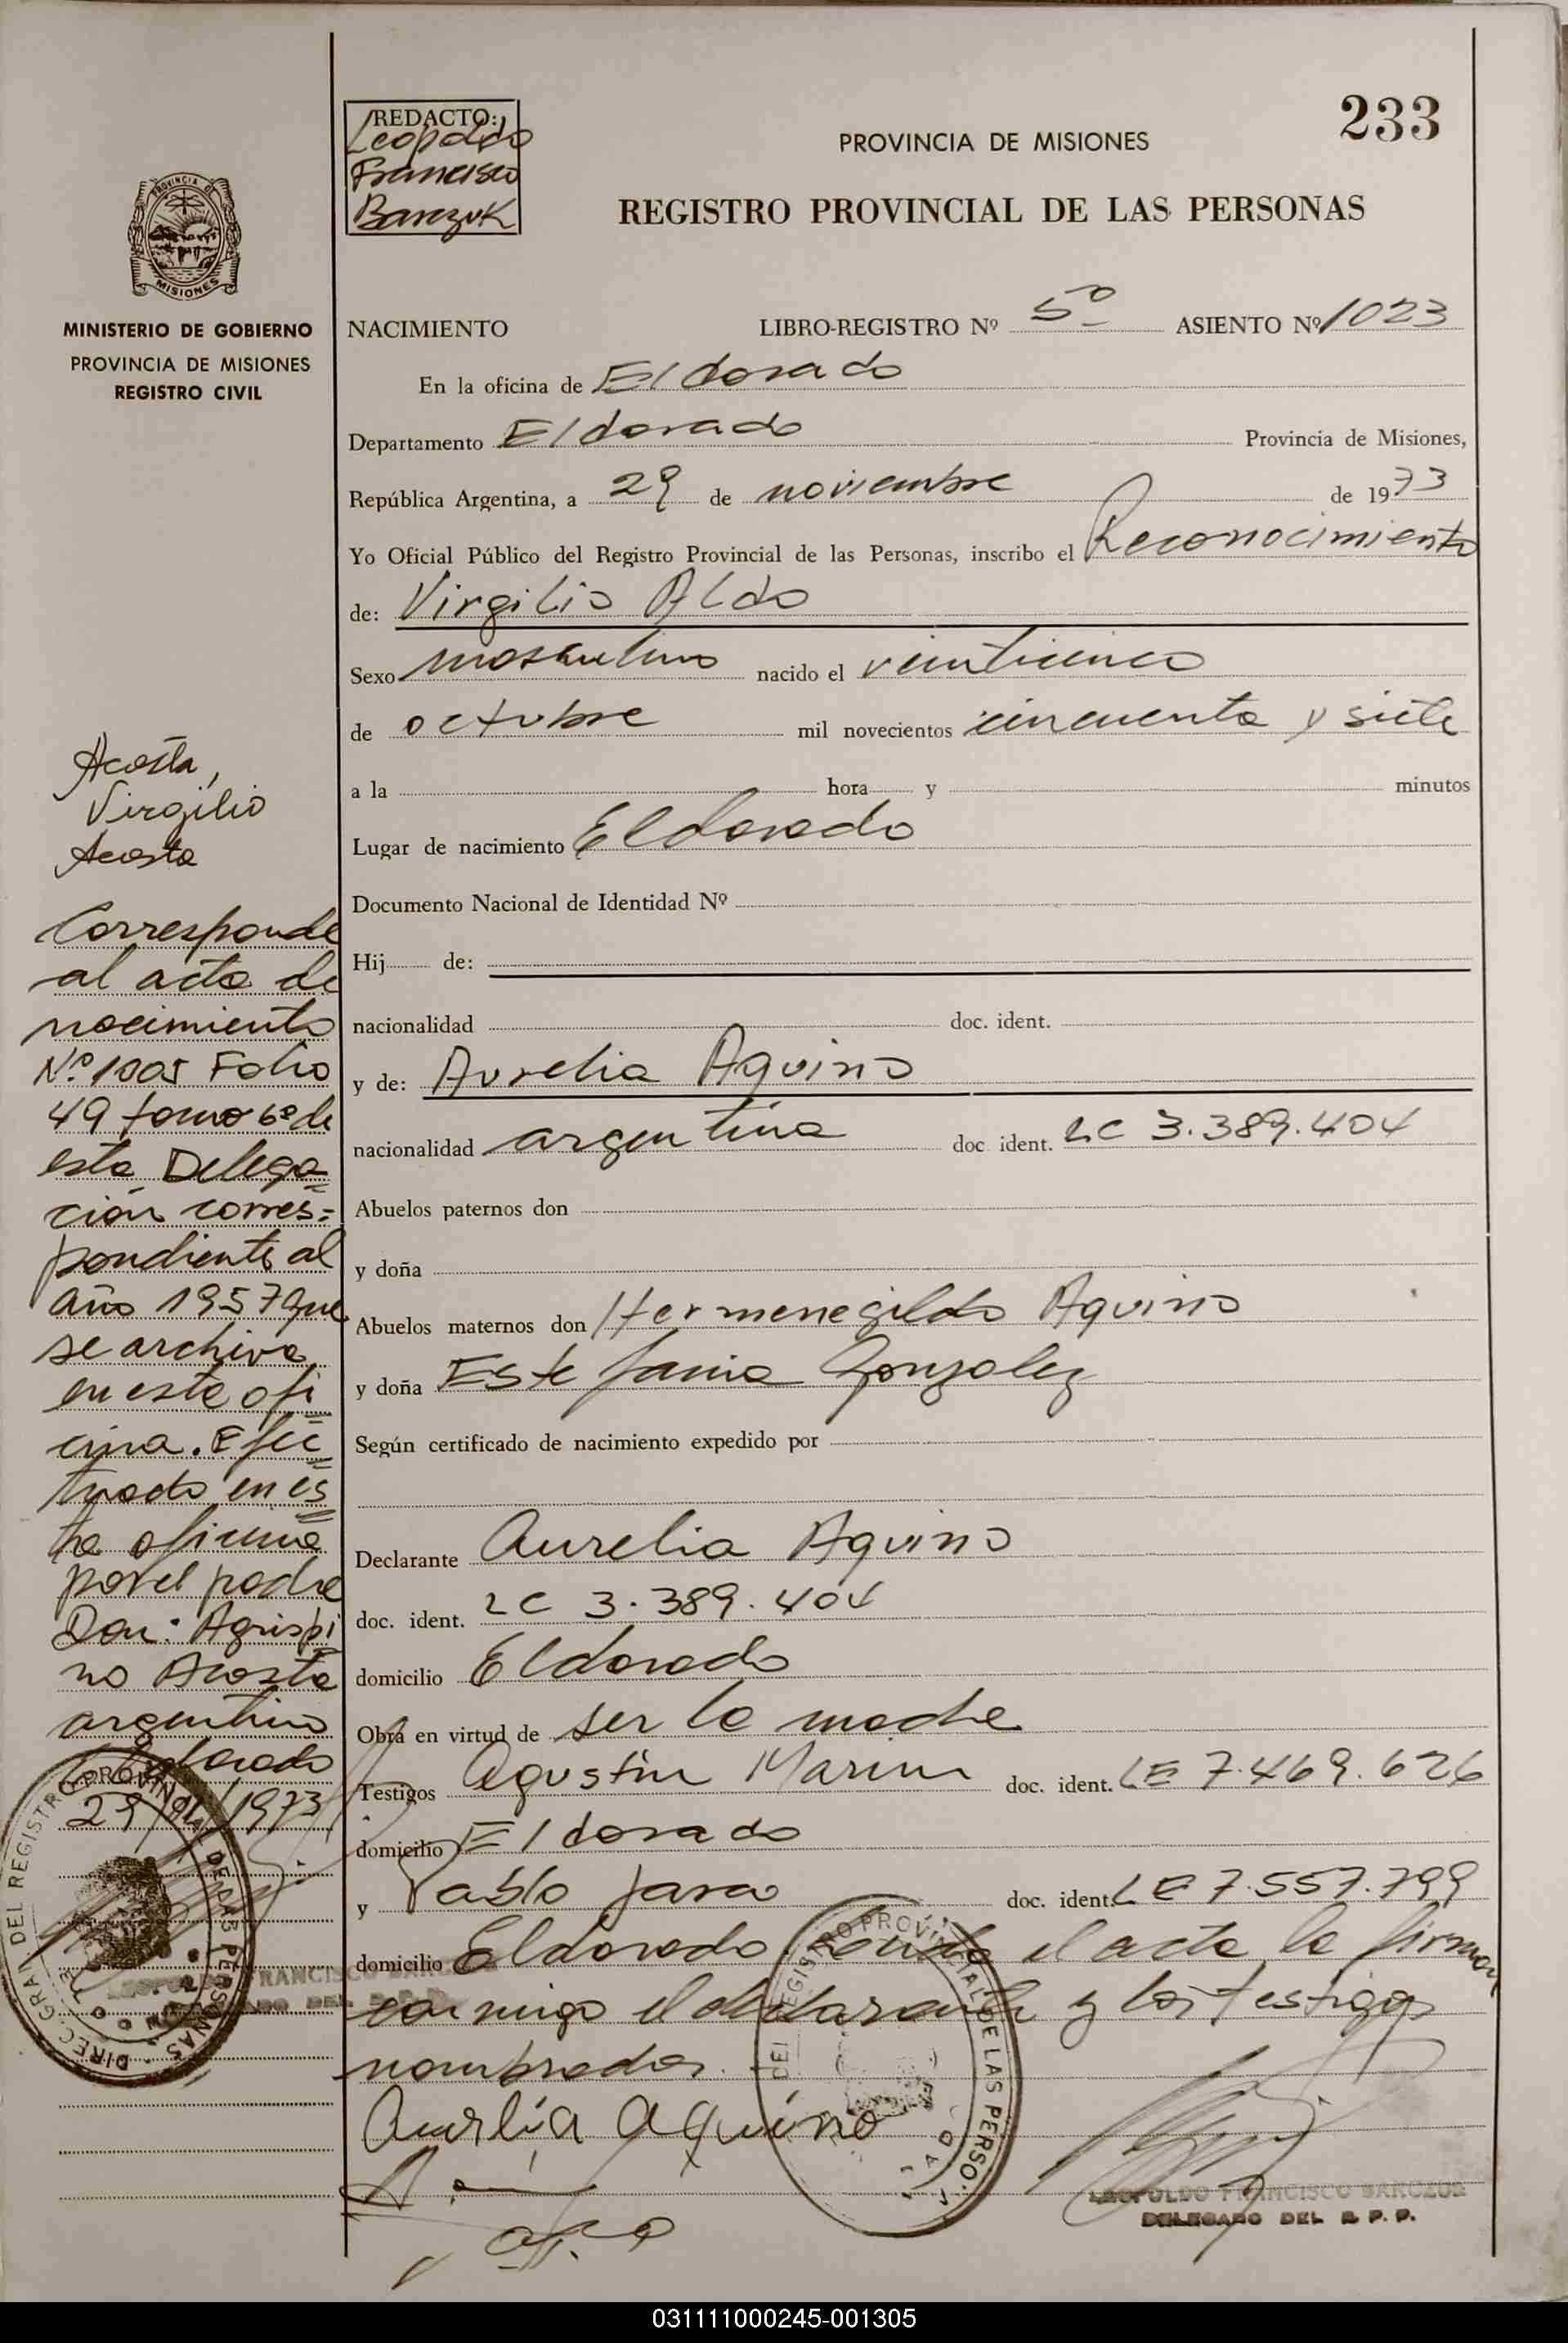 233
REDACTO:
Leopoldo
Francisco
Barczuk
PROVINCIA DE MISIONES
REGISTRO PROVINCIAL DE LAS PERSONAS
PROVINCIA DE
MISIONES
MINISTERIO DE GOBIERNO
PROVINCIA DE MISIONES
REGISTRO CIVIL
NACIMIENTO LIBRO-REGISTRO Nº 5º ASIENTO Nº 1023
En la oficina de Eldorado
Departamento Eldorado Provincia de Misiones,
República Argentina, a 29 de noviembre de 1973
Yo Oficial Público del Registro Provincial de las Personas, inscribo el Reconocimiento
de: Virgilio Aldo
Sexo masculino nacido el veinticinco
de octubre mil novecientos cincuenta y siete
a la hora y minutos
Lugar de nacimiento Eldorado
Documento Nacional de Identidad Nº
Hij de:
nacionalidad doc. ident.
y de: Aurelia Aquino
nacionalidad argentina doc ident. LC 3.389.404
Abuelos paternos don
y doña
Abuelos maternos don Hermenegildo Aquino
y doña Estefania Gonzalez
Según certificado de nacimiento expedido por
Declarante Aurelia Aquino
doc. ident. LC 3.389.404
domicilio Eldorado
Obra en virtud de ser la madre
Testigos Agustin Marin doc. ident. LE 7.469.626
domicilio Eldorado
y Pablo Jara doc. ident. LE 7.557.799
domicilio Eldorado, Leida el acta la firman
conmigo el declarante y los testigos
nombrados.
Aurelia Aquino
LEOPOLDO FRANCISCO BARCZUK
DELEGADO DEL R. P. P.
Acosta,
Virgilio
Acosta
Corresponde
al acta de
nacimiento
Nº 1005 Folio
49 tomo 6º de
esta Delega=
ción corres=
pondiente al
año 1957 que
se archiva
en esta ofi
cina. Efec=
tuado en es=
ta oficina
por el padre
Don: Agrispi
no Acosta
argentino
Eldorado
29/11/1973
DIREC. GRAL. DEL REGISTRO PROVINCIAL DE LAS PERSONAS
LEOPOLDO FRANCISCO BARCZUK
DELEGADO DEL R. P. P.
DEL REGISTRO PROVINCIAL DE LAS PERSO
031111000245-001305